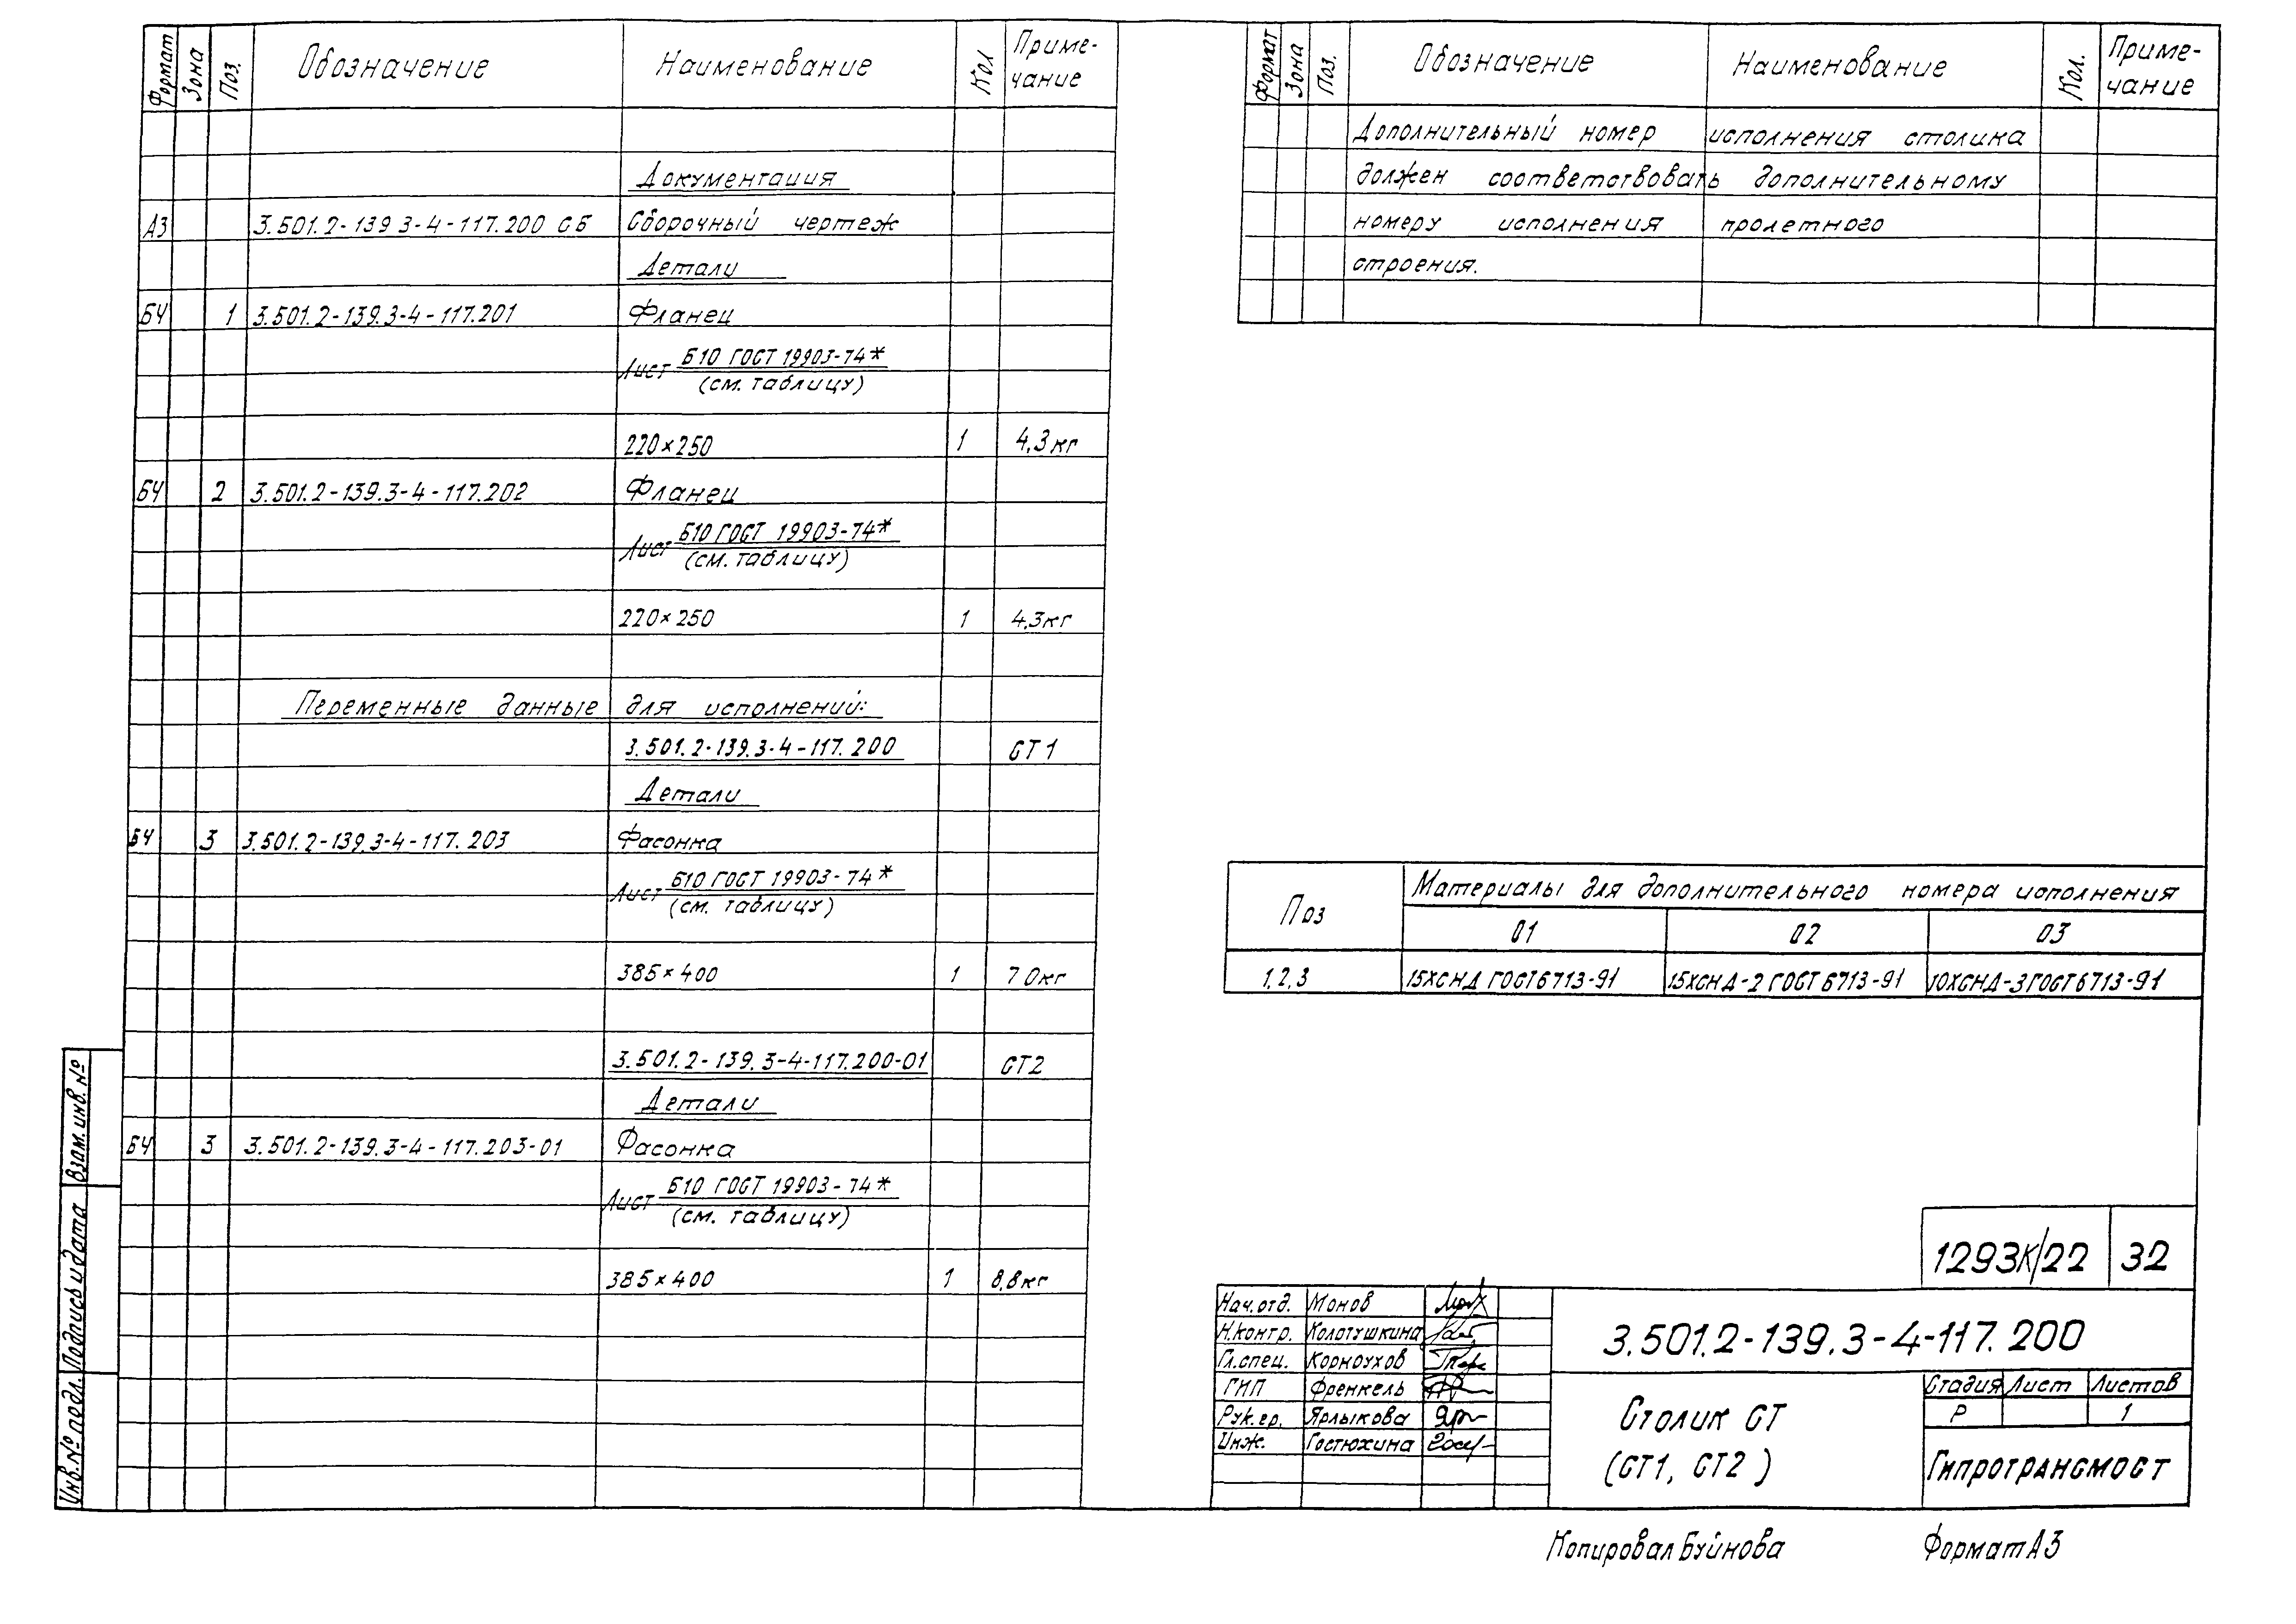 Формат Зона Поз. Обозначение Наименование Кол Приме-
чание
Документация
А3 3.501.2-139 3-4-117.200 СБ Сборочный чертеж
Детали
БЧ 1 3.501.2-139.3-4-117.201 Фланец
Лист Б10 ГОСТ 19903-74*
(см. таблицу)
220×250 1 4,3кг
БЧ 2 3.501.2-139.3-4-117.202 Фланец
Лист Б10 ГОСТ 19903-74*
(см. таблицу)
220×250 1 4,3кг
Переменные данные для исполнений:
3.501.2-139.3-4-117.200 СТ1
Детали
БЧ 3 3.501.2-139.3-4-117.203 Фасонка
Лист Б10 ГОСТ 19903-74*
(см. таблицу)
385×400 1 7 0кг
3.501.2-139.3-4-117.200-01 СТ2
Детали
БЧ 3 3.501.2-139.3-4-117.203-01 Фасонка
Лист Б10 ГОСТ 19903-74*
(см. таблицу)
385×400 1 8,8кг
Взам.инв.№
Подпись и дата
Инв.№ подл.
Формат Зона Поз. Обозначение Наименование Кол. Приме-
чание
Дополнительный номер исполнения столика
должен соответствовать дополнительному
номеру исполнения пролетного
строения.
Поз Материалы для дополнительного номера исполнения
01 02 03
1,2,3 15ХСНД ГОСТ6713-91 15ХСНД-2 ГОСТ6713-91 10ХСНД-3 ГОСТ6713-91
1293К/22 32
Нач.отд. Монов
Н.контр. Колотушкина
Гл.спец. Корноухов
ГИП Френкель
Рук.гр. Ярлыкова
Инж. Гостюхина
3.501.2-139.3-4-117.200
Столик СТ
(СТ1, СТ2)
Стадия Лист Листов
Р 1
Гипротрансмост
Копировал Буйнова Формат А3